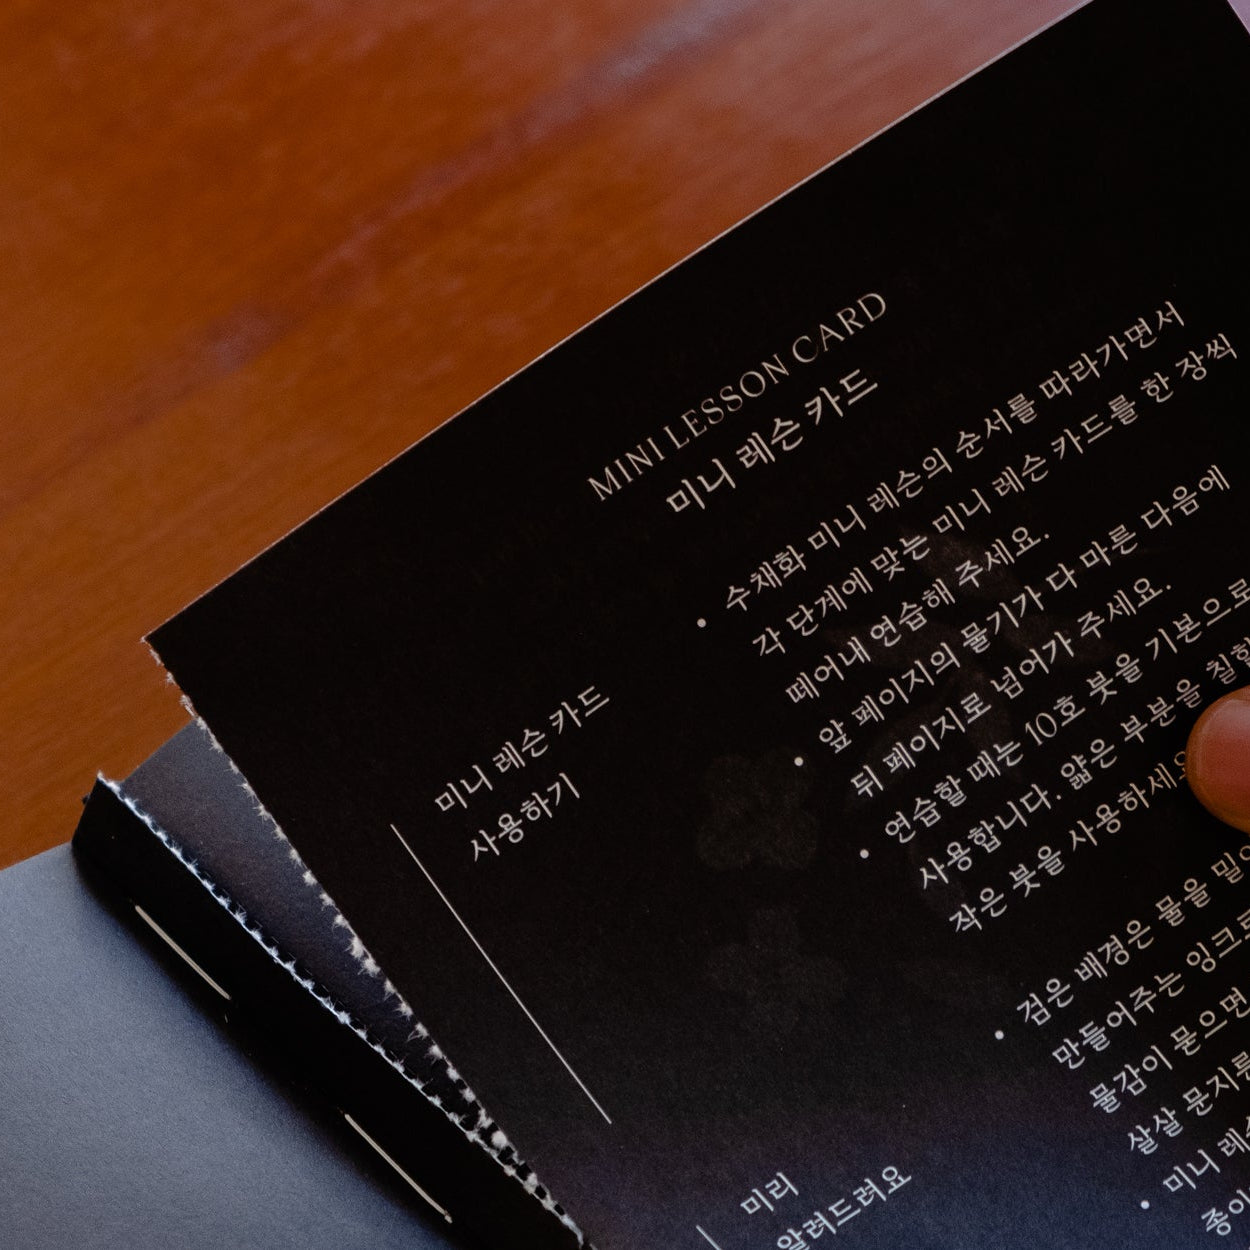 MINI LESSON CARD
미니 레슨 카드
미니 레슨 카드
사용하기
수채화 미니 레슨의 순서를 따라가면서
각 단계에 맞는 미니 레슨 카드를 한 장씩
떼어내 연습해 주세요.
앞 페이지의 물기가 다 마른 다음에
뒤 페이지로 넘어가 주세요.
연습할 때는 10호 붓을 기본으로
사용합니다. 얇은 부분을 칠할
작은 붓을 사용하세요
미리
알려드려요
검은 배경은 물을
만들어주는 잉크로
물감이 묻으면
살살 문지른
미니